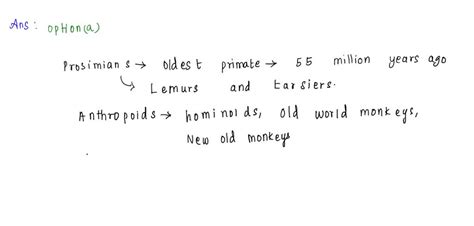 Ans: option(a)
Prosimians → oldest primate → 55 million years ago
↳ Lemurs and tarsiers.
Anthropoids → hominoids, old world monkeys,
New old monkeys